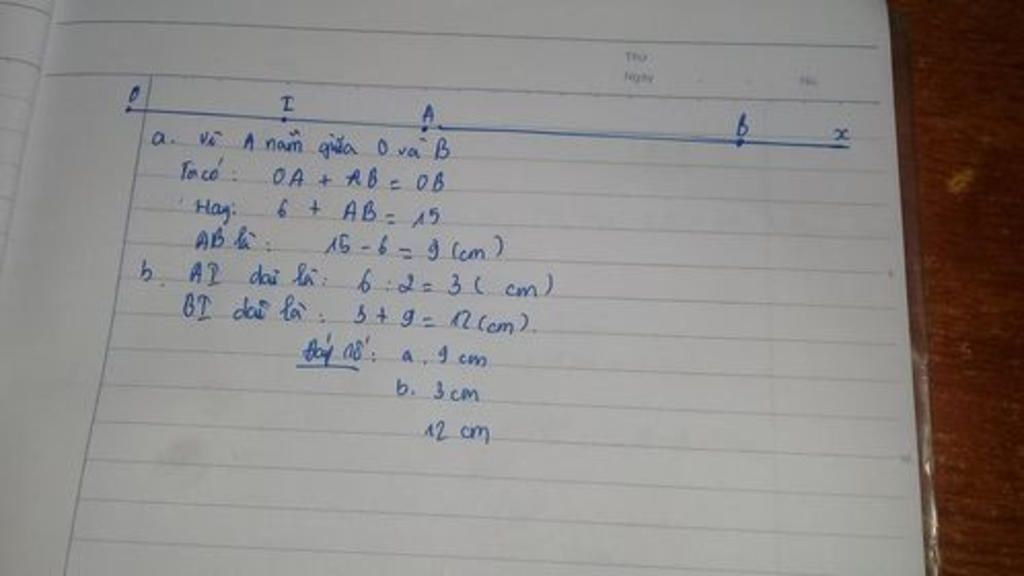 Thứ
Ngày No.
O I A B x
a. Vì A nằm giữa O và B
Ta có: OA + AB = OB
Hay: 6 + AB = 15
AB là: 15 - 6 = 9 (cm)
b. AI dài là: 6 : 2 = 3 ( cm)
BI dài là: 3 + 9 = 12 (cm).
Đáp số: a. 9 cm
b. 3 cm
12 cm